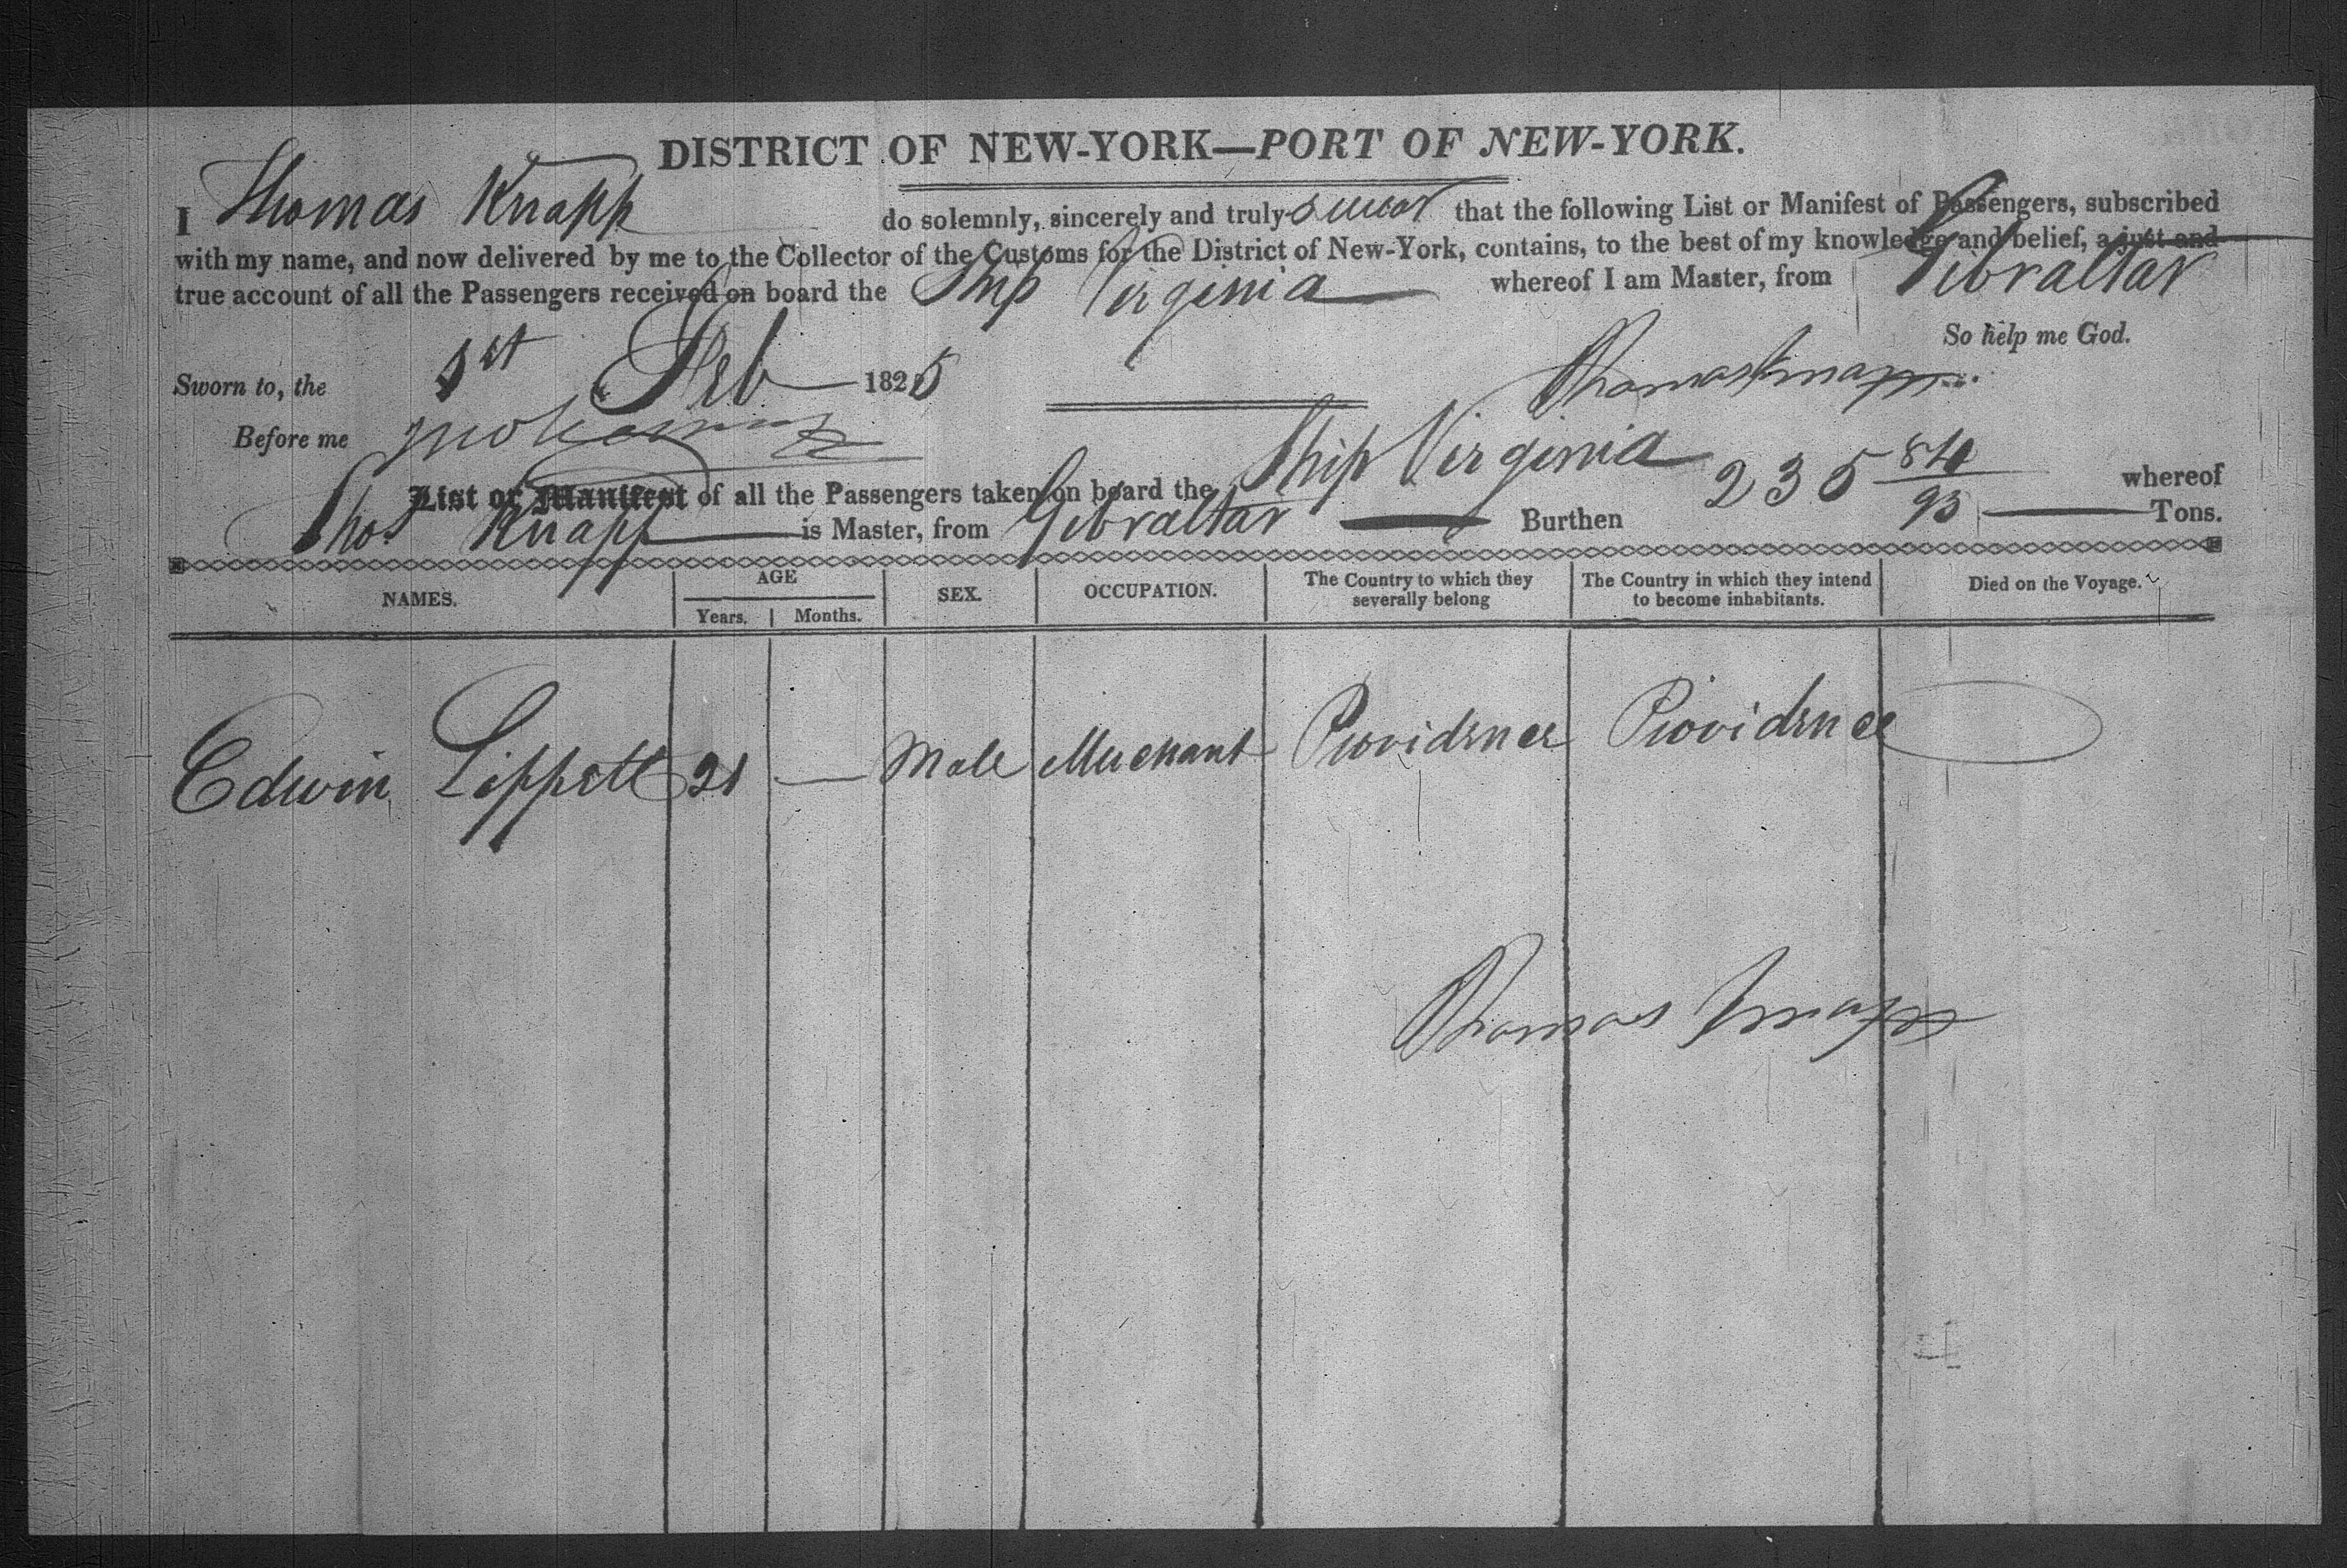 DISTRICT OF NEW-YORK—PORT OF NEW-YORK.
I Thomas Knapp do solemnly, sincerely and truly swear that the following List or Manifest of Passengers, subscribed
with my name, and now delivered by me to the Collector of the Customs for the District of New-York, contains, to the best of my knowledge and belief, a just and
true account of all the Passengers received on board the Ship Virginia whereof I am Master, from Gibraltar
So help me God.
Sworn to, the 1st Feb 1825 Thomas Knapp
Before me
List or Manifest of all the Passengers taken on board the Ship Virginia 235 84/95 whereof
Thos Knapp is Master, from Gibraltar Burthen Tons.
NAMES. AGE Years. Months. SEX. OCCUPATION. The Country to which they severally belong The Country in which they intend to become inhabitants. Died on the Voyage.
Edwin Lippett 21 — Male Merchant Providence Providence
Thomas Knapp